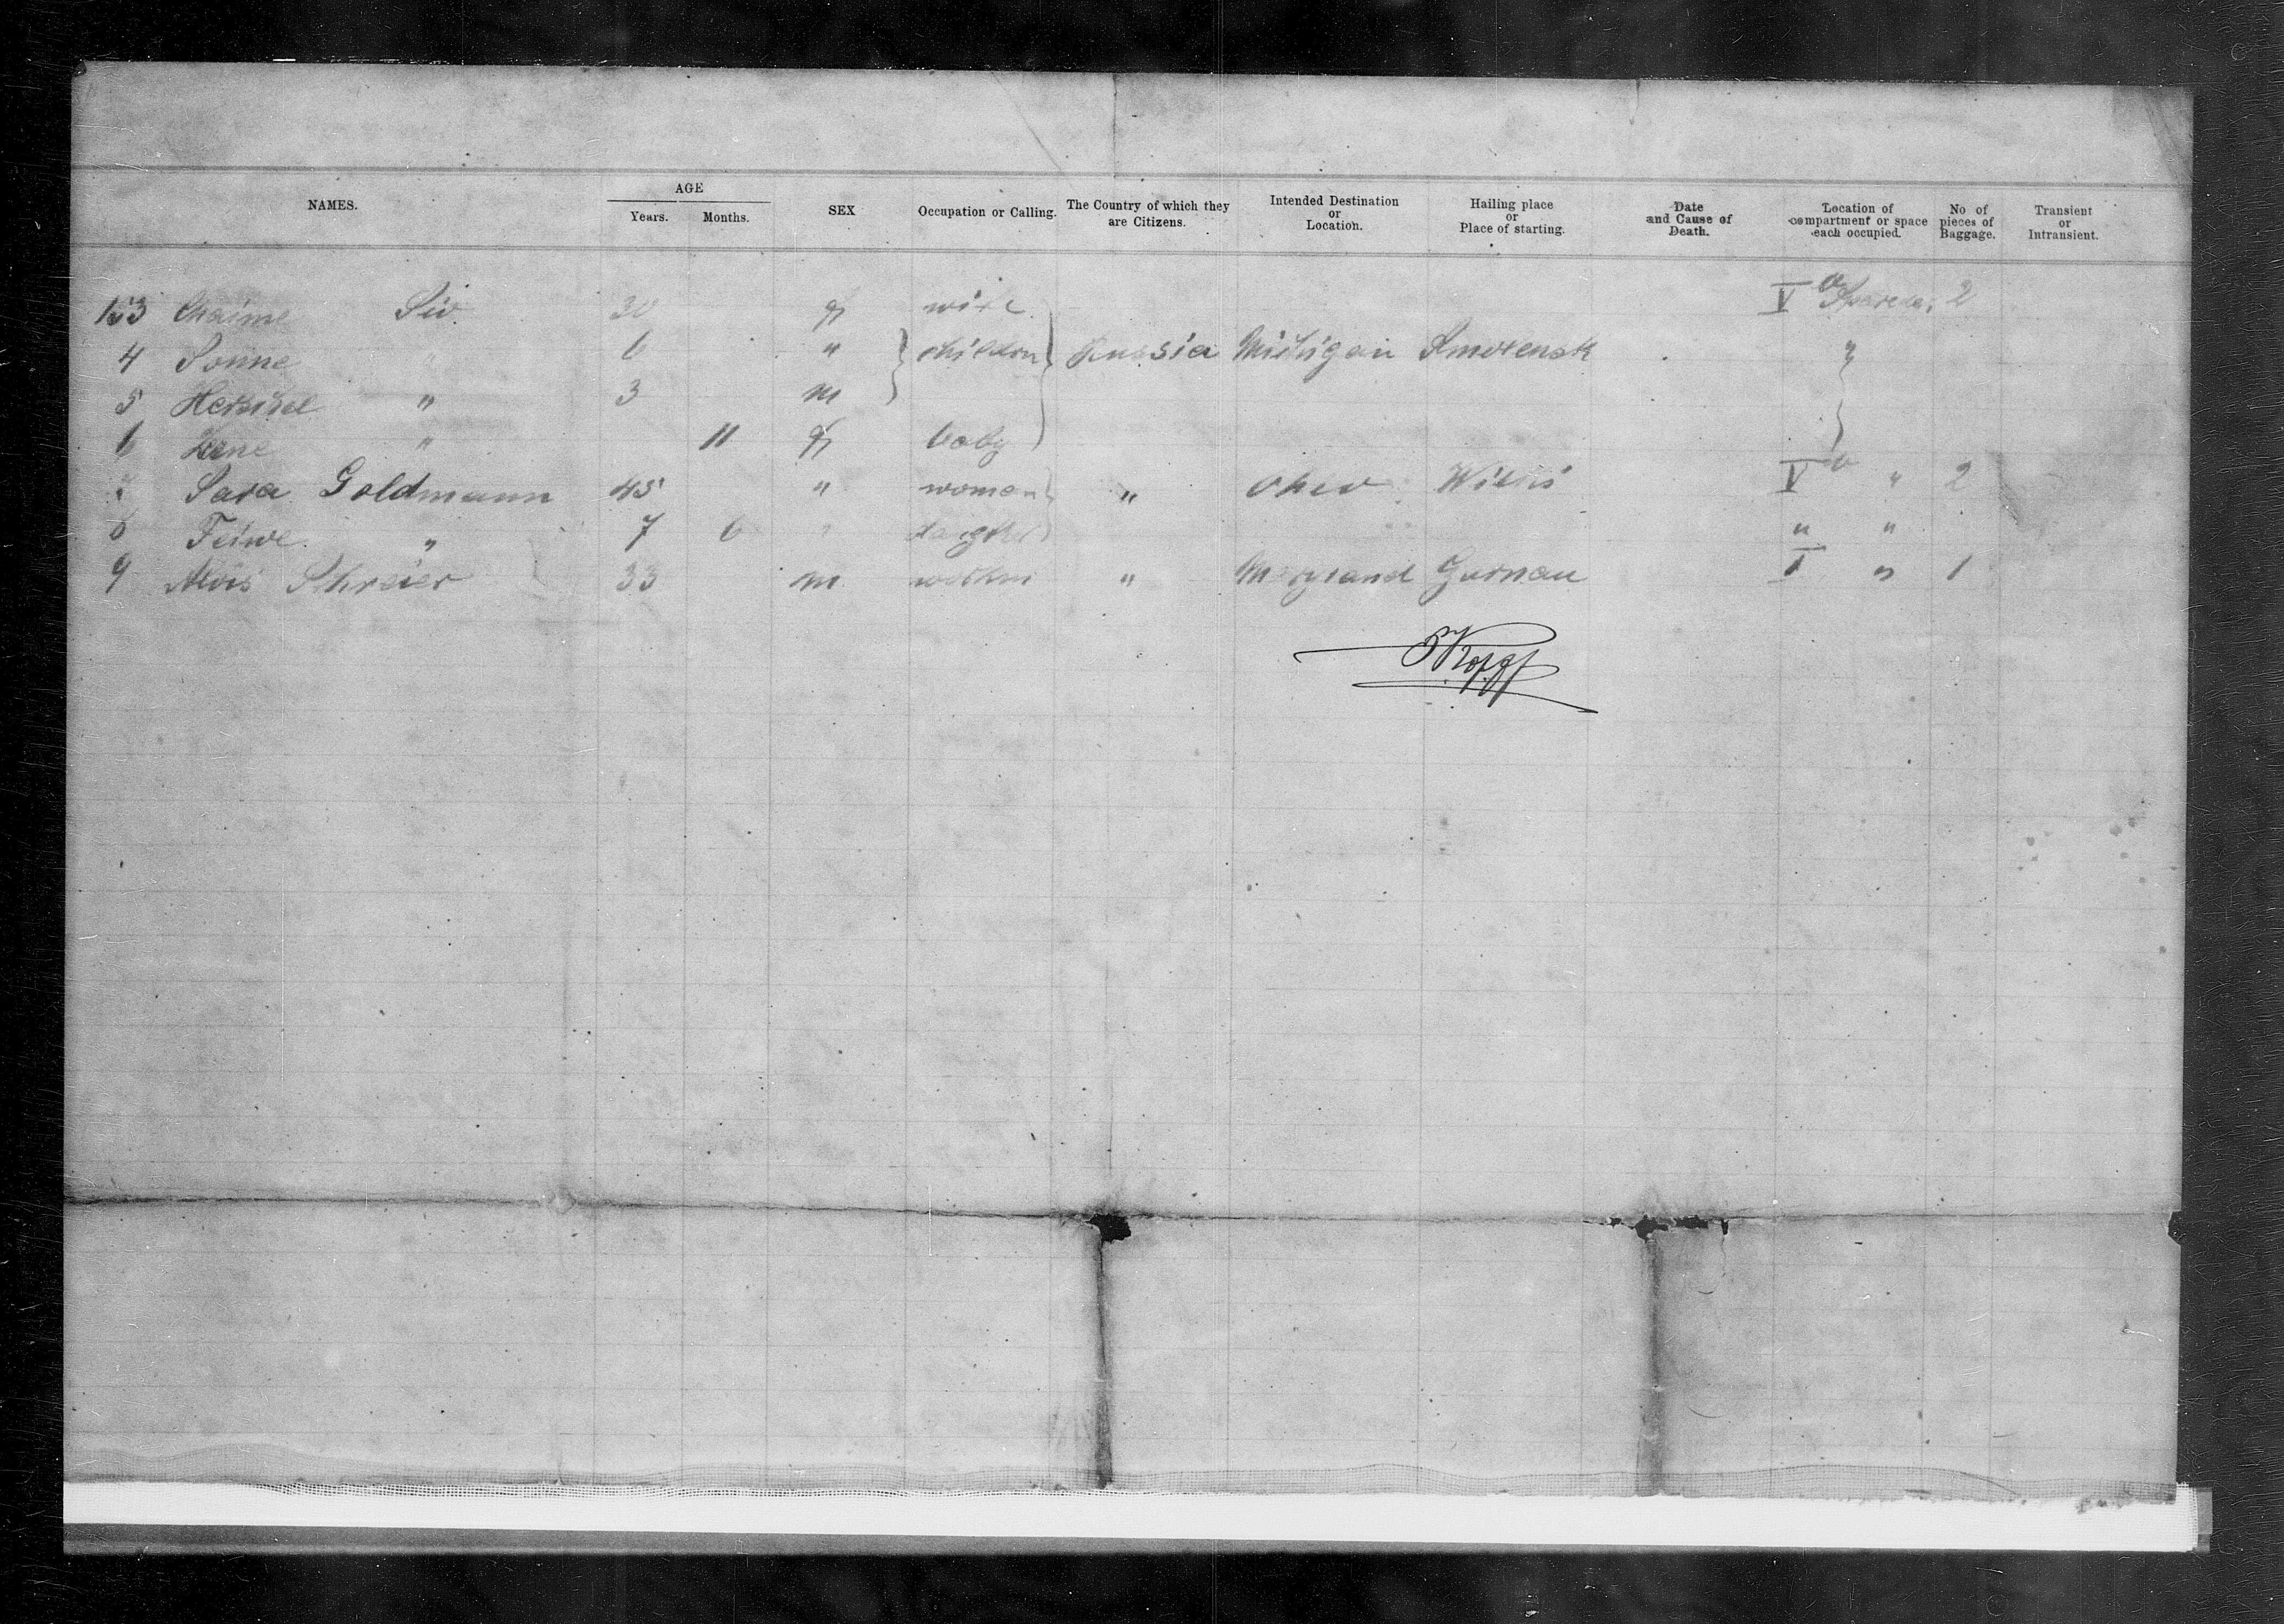 NAMES. AGE Years. Months. SEX Occupation or Calling. The Country of which they are Citizens. Intended Destination or Location. Hailing place or Place of starting. Date and Cause of Death. Location of compartment or space each occupied. No of pieces of Baggage. Transient or Intransient.
153 Chaime 30 f wife V 2
4 Sonne " 6 " children Russia Michigan Smolensk "
5 Herschel " 3 m
6 " 11 f baby
7 Sara Goldmann 45 " woman " Ohio V " 2
8 Feiwe " 7 6 " daughter " "
9 Alois Schreier 33 m " Maryland I " 1